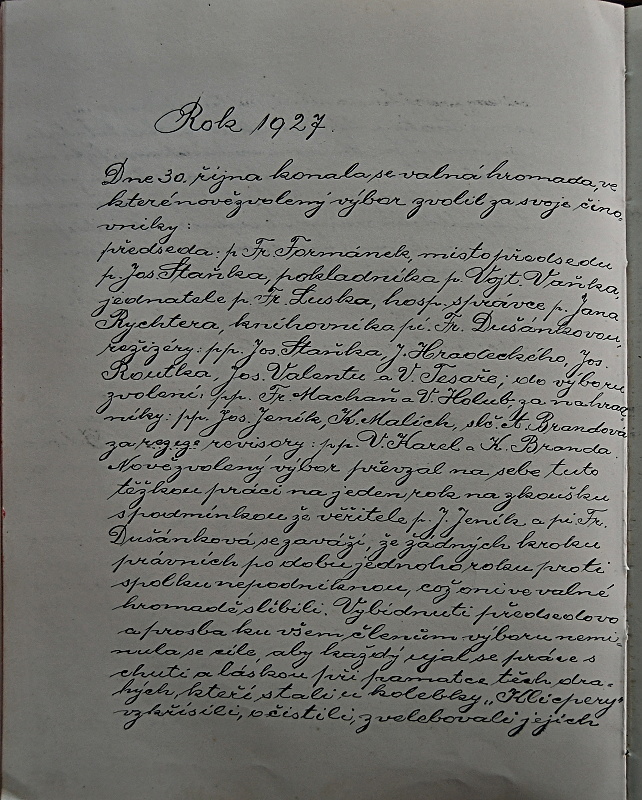 Rok 1927.
Dne 30. října konala se valná hromada, ve
které nově zvolený výbor zvolil za svoje čino-
vníky:
předseda: p. Fr. Formánek, místopředsedu
p. Jos. Staňka, pokladníka p. Vojt. Vaňka,
jednatele p. Fr. Luska, hosp. správce p. Jana
Rychtera, knihovníka pí. Fr. Dušánkovou,
režizéry: pp. Jos. Staňka, J. Hradeckého, Jos.
Routka, Jos. Valentu a V. Tesaře; do výboru
zvoleni: pp. Fr. Machaň a V. Holub za náhrad
níky: pp. Jos. Jeník, K. Malich, slč. A. Brandová
za revisory: pp. V. Karel a K. Branda.
Nově zvolený výbor převzal na sebe tuto
těžkou práci na jeden rok na zkoušku
s podmínkou že věřitelé p. J. Jeník a pí. Fr.
Dušánková se zaváží, že žádných kroků
právních po dobu jednoho roku proti
spolku nepodniknou, což oni ve valné
hromadě slíbili. Vybídnutí předsedovo
a prosba ku všem členům výboru nemi-
nula se cíle, aby každý ujal se práce s
chutí a láskou při památce těch dra-
hých, kteří stáli u kolébky „Klicpery"
vzkřísili, očistili, zvelebovali jejich